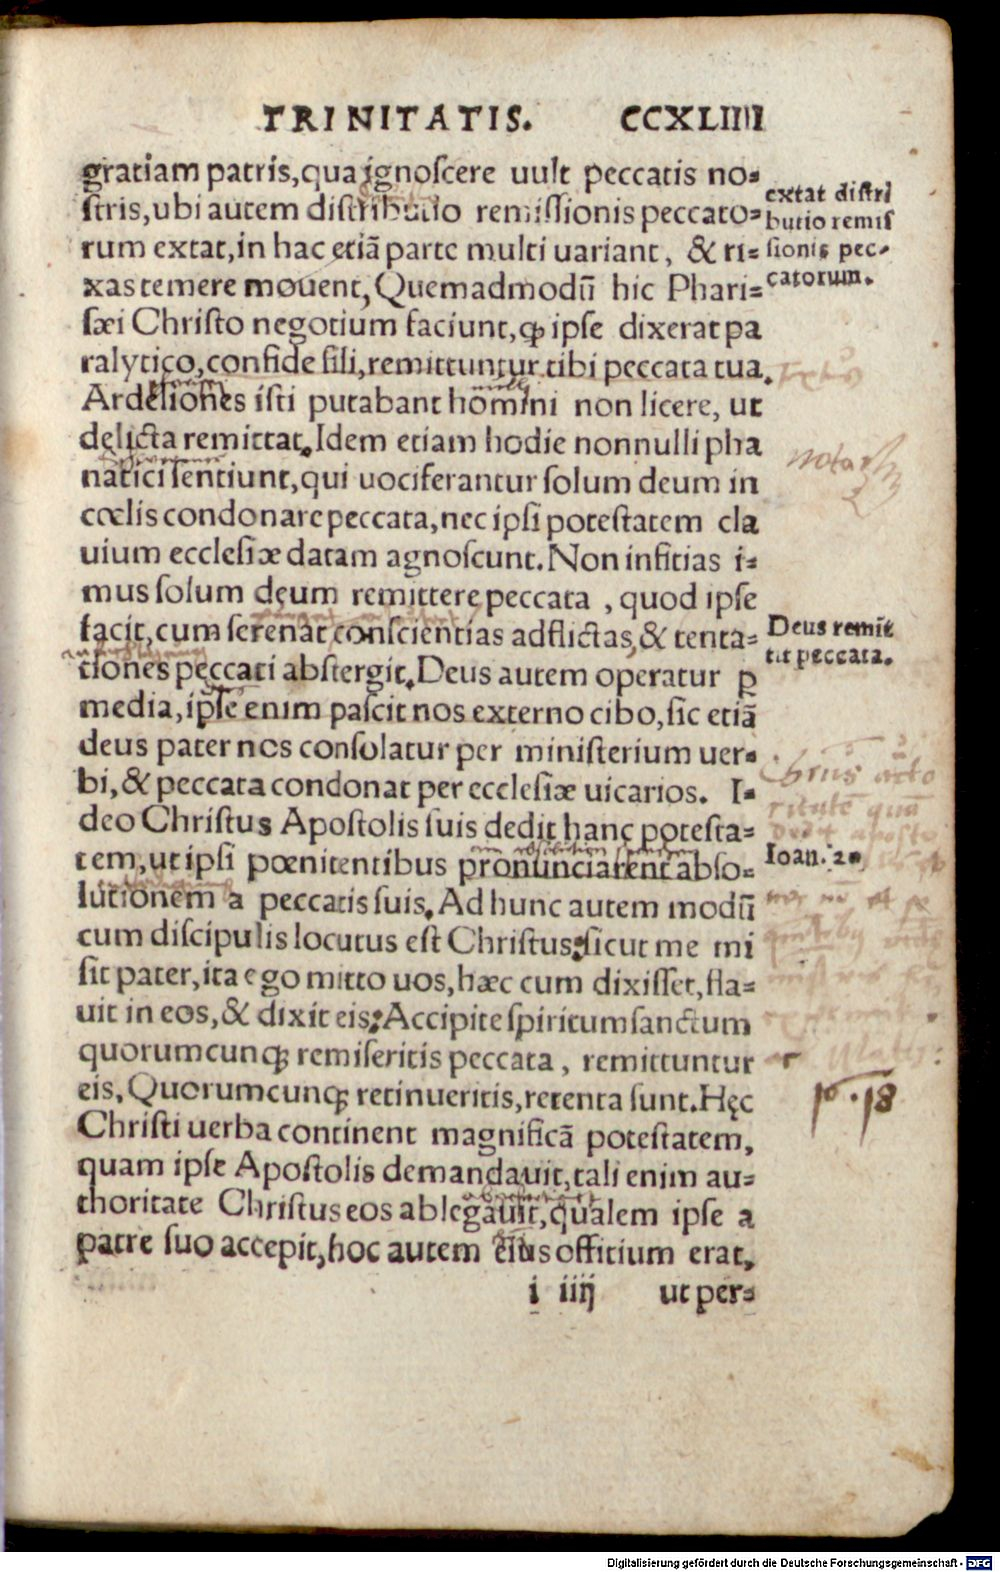 TRINITATIS. CCXLIIII
gratiam patris, qua ignoscere uult peccatis no=
stris, ubi autem distributio remissionis peccato=
rum extat, in hac etiā parte multi uariant, & ri=
xas temere mouent, Quemadmodū hic Phari=
sæi Christo negotium faciunt, ꝙ ipse dixerat pa
ralytico, confide fili, remittuntur tibi peccata tua.
Ardeliones isti putabant homini non licere, ut
delicta remittat. Idem etiam hodie nonnulli pha
natici sentiunt, qui uociferantur solum deum in
cœlis condonare peccata, nec ipsi potestatem cla
uium ecclesiæ datam agnoscunt. Non infitias i=
mus solum deum remittere peccata, quod ipse
facit, cum serenat conscientias adflictas, & tenta=
tiones peccati abstergit. Deus autem operatur ꝑ
media, ipse enim pascit nos externo cibo, sic etiā
deus pater nos consolatur per ministerium uer=
bi, & peccata condonat per ecclesiæ uicarios. I=
deo Christus Apostolis suis dedit hanc potesta=
tem, ut ipsi pœnitentibus pronunciarent abso=
lutionem a peccatis suis. Ad hunc autem modū
cum discipulis locutus est Christus: sicut me mi
sit pater, ita ego mitto uos, hæc cum dixisset, fla=
uit in eos, & dixit eis: Accipite spiritum sanctum
quorumcunqꝫ remiseritis peccata, remittuntur
eis, Quorumcunqꝫ retinueritis, retenta sunt. Hęc
Christi uerba continent magnificā potestatem,
quam ipse Apostolis demandauit, tali enim au=
thoritate Christus eos ablegauit, qualem ipse a
patre suo accepit, hoc autem eius offitium erat,
i iiij ut per=
extat distri
butio remis
sionis pec=
catorum.
nota
Deus remit
tit peccata.
Ioan. 20
18
Digitalisierung gefördert durch die Deutsche Forschungsgemeinschaft - DFG